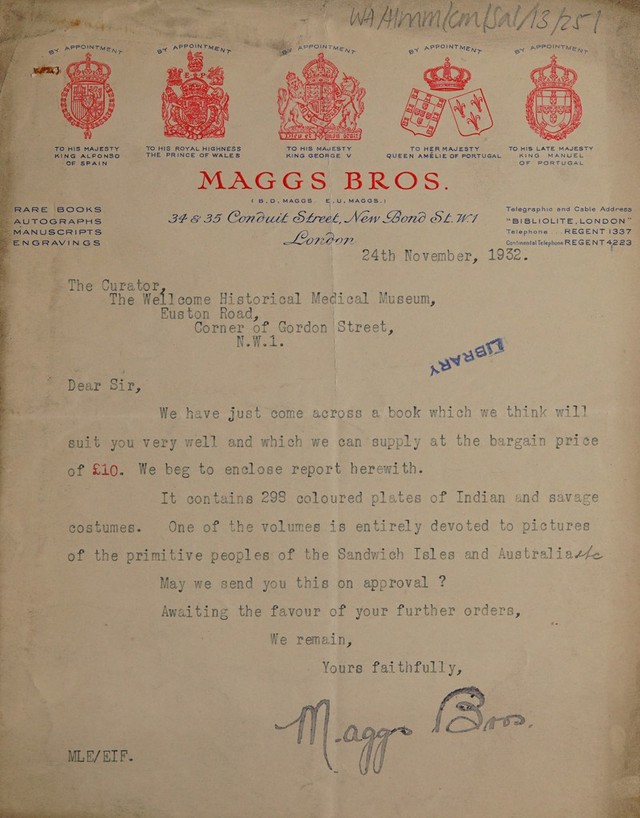 WA/HMM/CM/Sal/13/251
BY APPOINTMENT
TO HIS MAJESTY
KING ALFONSO
OF SPAIN
BY APPOINTMENT
TO HIS ROYAL HIGHNESS
THE PRINCE OF WALES
BY APPOINTMENT
TO HIS MAJESTY
KING GEORGE V
BY APPOINTMENT
TO HER MAJESTY
QUEEN AMÉLIE OF PORTUGAL
BY APPOINTMENT
TO HIS LATE MAJESTY
KING MANUEL
OF PORTUGAL
MAGGS BROS.
( B.D. MAGGS. E.U. MAGGS. )
RARE BOOKS
AUTOGRAPHS
MANUSCRIPTS
ENGRAVINGS
34 & 35 Conduit Street, New Bond St. W1
London
Telegraphic and Cable Address
"BIBLIOLITE, LONDON"
Telephone ... REGENT 1337
Continental Telephone REGENT 4223
24th November, 1932.
The Curator,
The Wellcome Historical Medical Museum,
Euston Road,
Corner of Gordon Street,
N.W.1.
LIBRARY
Dear Sir,
We have just come across a book which we think will
suit you very well and which we can supply at the bargain price
of £10. We beg to enclose report herewith.
It contains 298 coloured plates of Indian and savage
costumes. One of the volumes is entirely devoted to pictures
of the primitive peoples of the Sandwich Isles and Australia etc
May we send you this on approval ?
Awaiting the favour of your further orders,
We remain,
Yours faithfully,
Maggs Bros.
MLE/EIF.